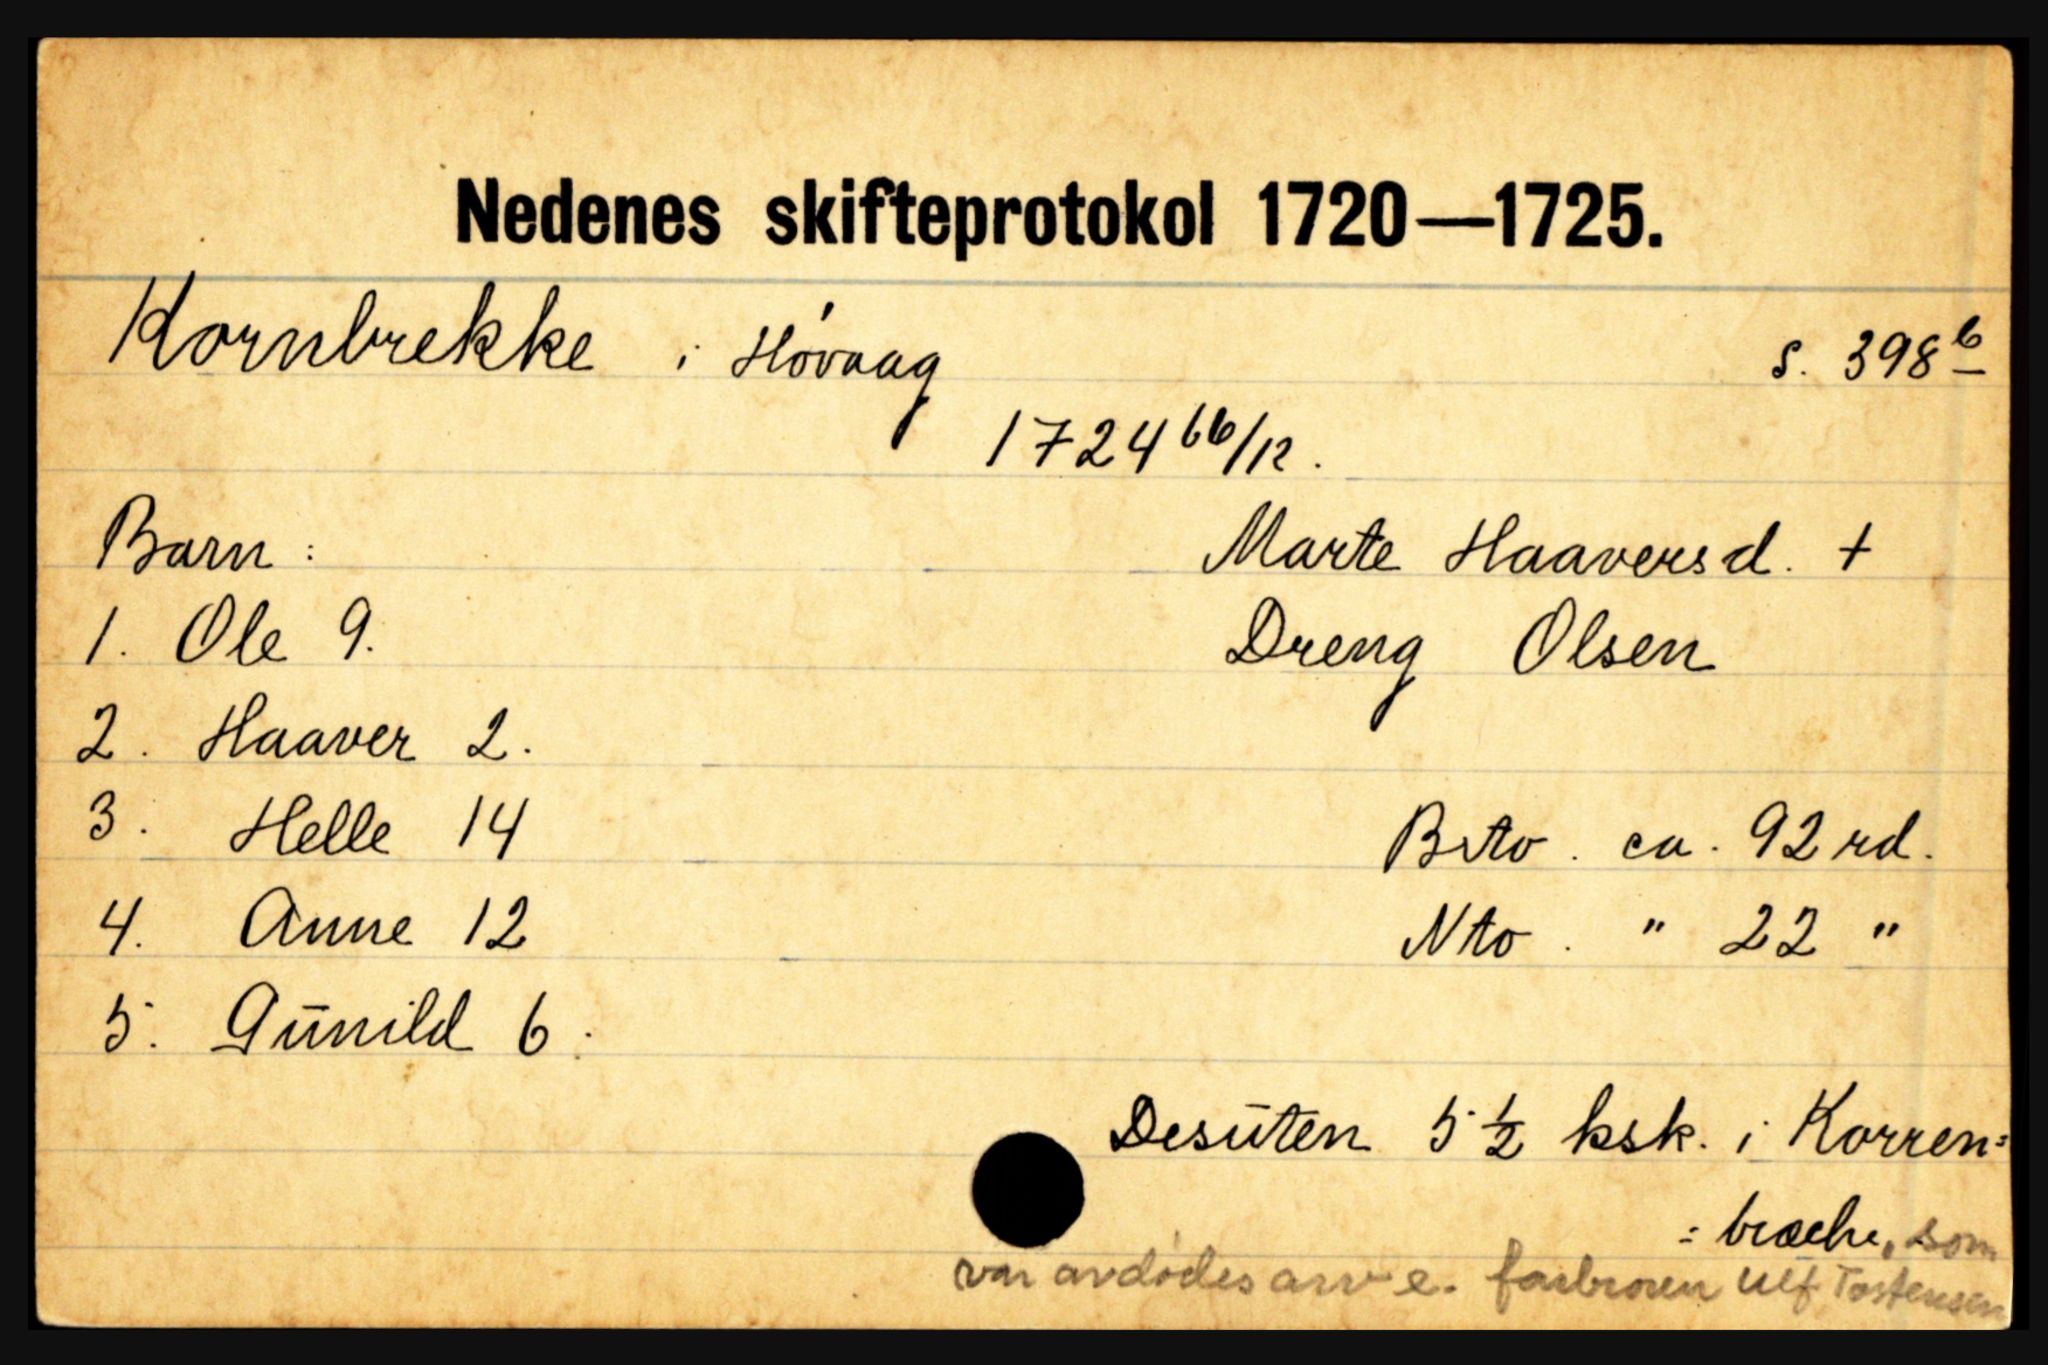 Nedenes skifteprotokol 1720—1725.
Kornbrekke i Høvaag s. 398b
1724 16/12.
Barn: Marte Haaversd. +
1. Ole 9. Dreng Olsen
2. Haaver 2.
3. Helle 14 Bto. ca. 92 rd.
4. Anne 12 Nto. " 22 "
5. Gūnild 6.
Desūten 5 1/2 ksk. i Korren=
=bræche, som
var avdødes arv e. farbroren Ulf Tostensen